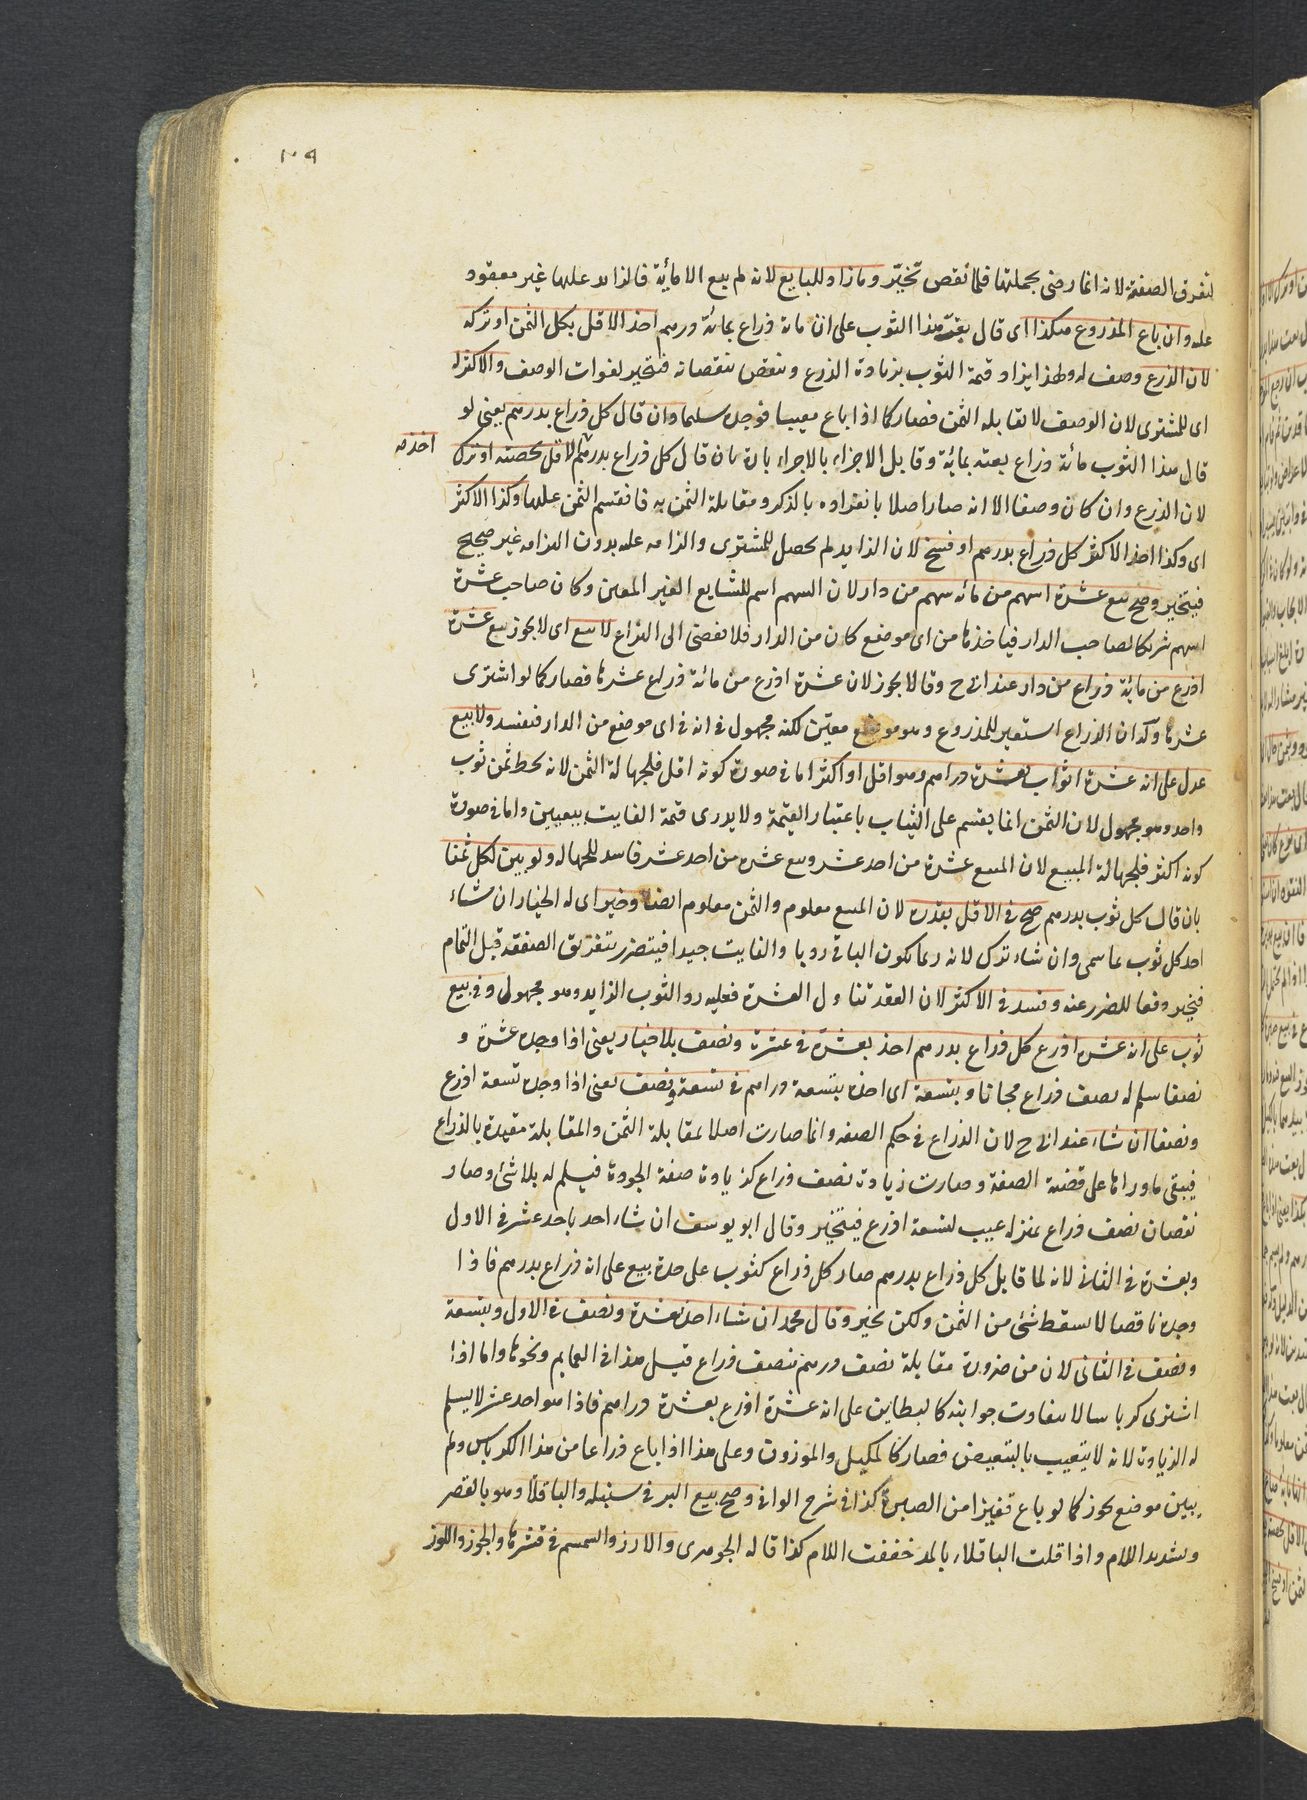 ١٠٩
لتفرق الصفقة لانه انما رضى بجملتها فلما نقص تخيّر وما زاد للبايع لانه لم يبع الا مائة فالزايد عليها غير معقود
عليه وان باع المذروع هكذا اى قال بعت هذا الثوب على ان مائة ذراع بمائة درهم اخذ الاقل بكل الثمن او تركه
لان الذرع وصف له ولهذا يزاد قيمة الثوب بزيادة الذرع وينقص بنقصانه فيتخير لفوات الوصف والاكثر له
اى للمشترى لان الوصف لا يقابله الثمن فصار كما اذا باع معيبا فوجده سليما وان قال كل ذراع بدرهم يعنى لو
قال هذا الثوب مائة ذراع بعته بمائة وقابل الاجزاء بالاجزاء بان قال كل ذراع بدرهم الاقل بحصته او ترك
اخذ صه
لان الذرع وان كان وصفا الا انه صار اصلا بانفراده بالذكر ومقابلة الثمن به فانقسم الثمن عليها وكذا الاكثر
اى وكذا اخذ الاكثر كل ذراع بدرهم او فسخ لان الزايد لم يحصل للمشترى والزامه عليه بدون التزامه غير صحيح
فيتخير وصح بيع عشرة اسهم من مائه سهم من دار لان السهم اسم للشايع الغير المعين وكان صاحب عشرة
اسهم شريكا لصاحب الدار فياخذها من اى موضع كان من الدار فلا يفضى الى النزاع لا بيع اى لا يجوز بيع عشرة
اذرع من مائة ذراع من دار عند ابى ح وقالا يجوز لان عشرة اذرع من مائة ذراع عشرها فصار كما لو اشترى
عشرها وله ان الذراع استعير للمذروع وهو موضع معيّن لكنه مجهول فى انه فى اى موضع من الدار فيفسد ولا بيع
عدل على انه عشرة اثواب بعشرة دراهم وهو اقل او اكثر اما فى صورة كونه اقل فلجهالة الثمن لانه يحط ثمن ثوب
واحد وهو مجهول لان الثمن انما يقسم على الثياب باعتبار القيمة ولا يدرى قيمة الفايت بيقين واما فى صورة
كونه اكثر فلجهالة المبيع لان المبيع عشرة من احد عشر وبيع عشره من احد عشر فاسد للجهاله ولو بين لكل ثمنا
بان قال كل ثوب بدرهم صح فى الاقل بقدره لان المبيع معلوم والثمن معلوم ايضا وخير اى له الخيار ان شاء
اخذ كل ثوب بما سمى وان شاء ترك لانه ربما يكون الباقى رديا والفايت جيدا فيتضرر بتفريق الصفقه قبل التمام
فيخير دفعا للضرر عنه وفسد فى الاكثر لان العقد تناول العشرة فعليه رد الثوب الزايد وهو مجهول وفى بيع
ثوب على انه عشره اذرع كل ذراع بدرهم اخذ بعشرة فى عشرة ونصف بلا خيار يعنى اذا وجده عشرة و
نصفا سلم له نصف ذراع مجانا وبتسعة اى اخذه بتسعة دراهم فى تسعة ونصف يعنى اذا وجده تسعة اذرع
ونصفا ان شاء عند ابى ح لان الذراع فى حكم الصفه وانما صارت اصلا لمقابلة الثمن والمقابلة مقيدة بالذراع
فيبقى ما وراها على قضية الصفة وصارت زيادة نصف ذراع كزيادة صفة الجودة فيسلم له بلا شئ وصار
نقصان نصف ذراع بمنزلة عيب لتسعة اذرع فيتخير وقال ابو يوسف ان شاء اخذ باحد عشر فى الاول
وبعشرة فى الثانى لانه لما قابل كل ذراع بدرهم صار كل ذراع كثوب على حدة بيع على انه ذراع بدرهم فاذا
وجده ناقصا لا يسقط شئ من الثمن ولكن يخير وقال محمد ان شاء اخذ بعشرة ونصف فى الاول وبتسعة
ونصف فى الثانى لان من ضرورة مقابلة نصف درهم بنصف ذراع قيل هذا فى العمايم ونحوها واما اذا
اشترى كرباسا لا يتفاوت جوانبه كالبطاين على انه عشرة اذرع بعشرة دراهم فاذا هو احد عشر لا يسلم
له الزيادة لانه لا يتعيب بالتبعيض فصار كالمكيل والموزون وعلى هذا اذا باع ذراعا من هذا الكرباس ولم
يبين موضع يجوز كما لو باع قفيزا من الصبرة كذا فى شرح الوافى وصح بيع البر فى سنبله والباقلا وهو بالقصر
وتشديد اللام واذا قلت الباقلاء بالمد خففت اللام كذا قاله الجوهرى والارز والسمسم فى قشرها والجوز واللوز